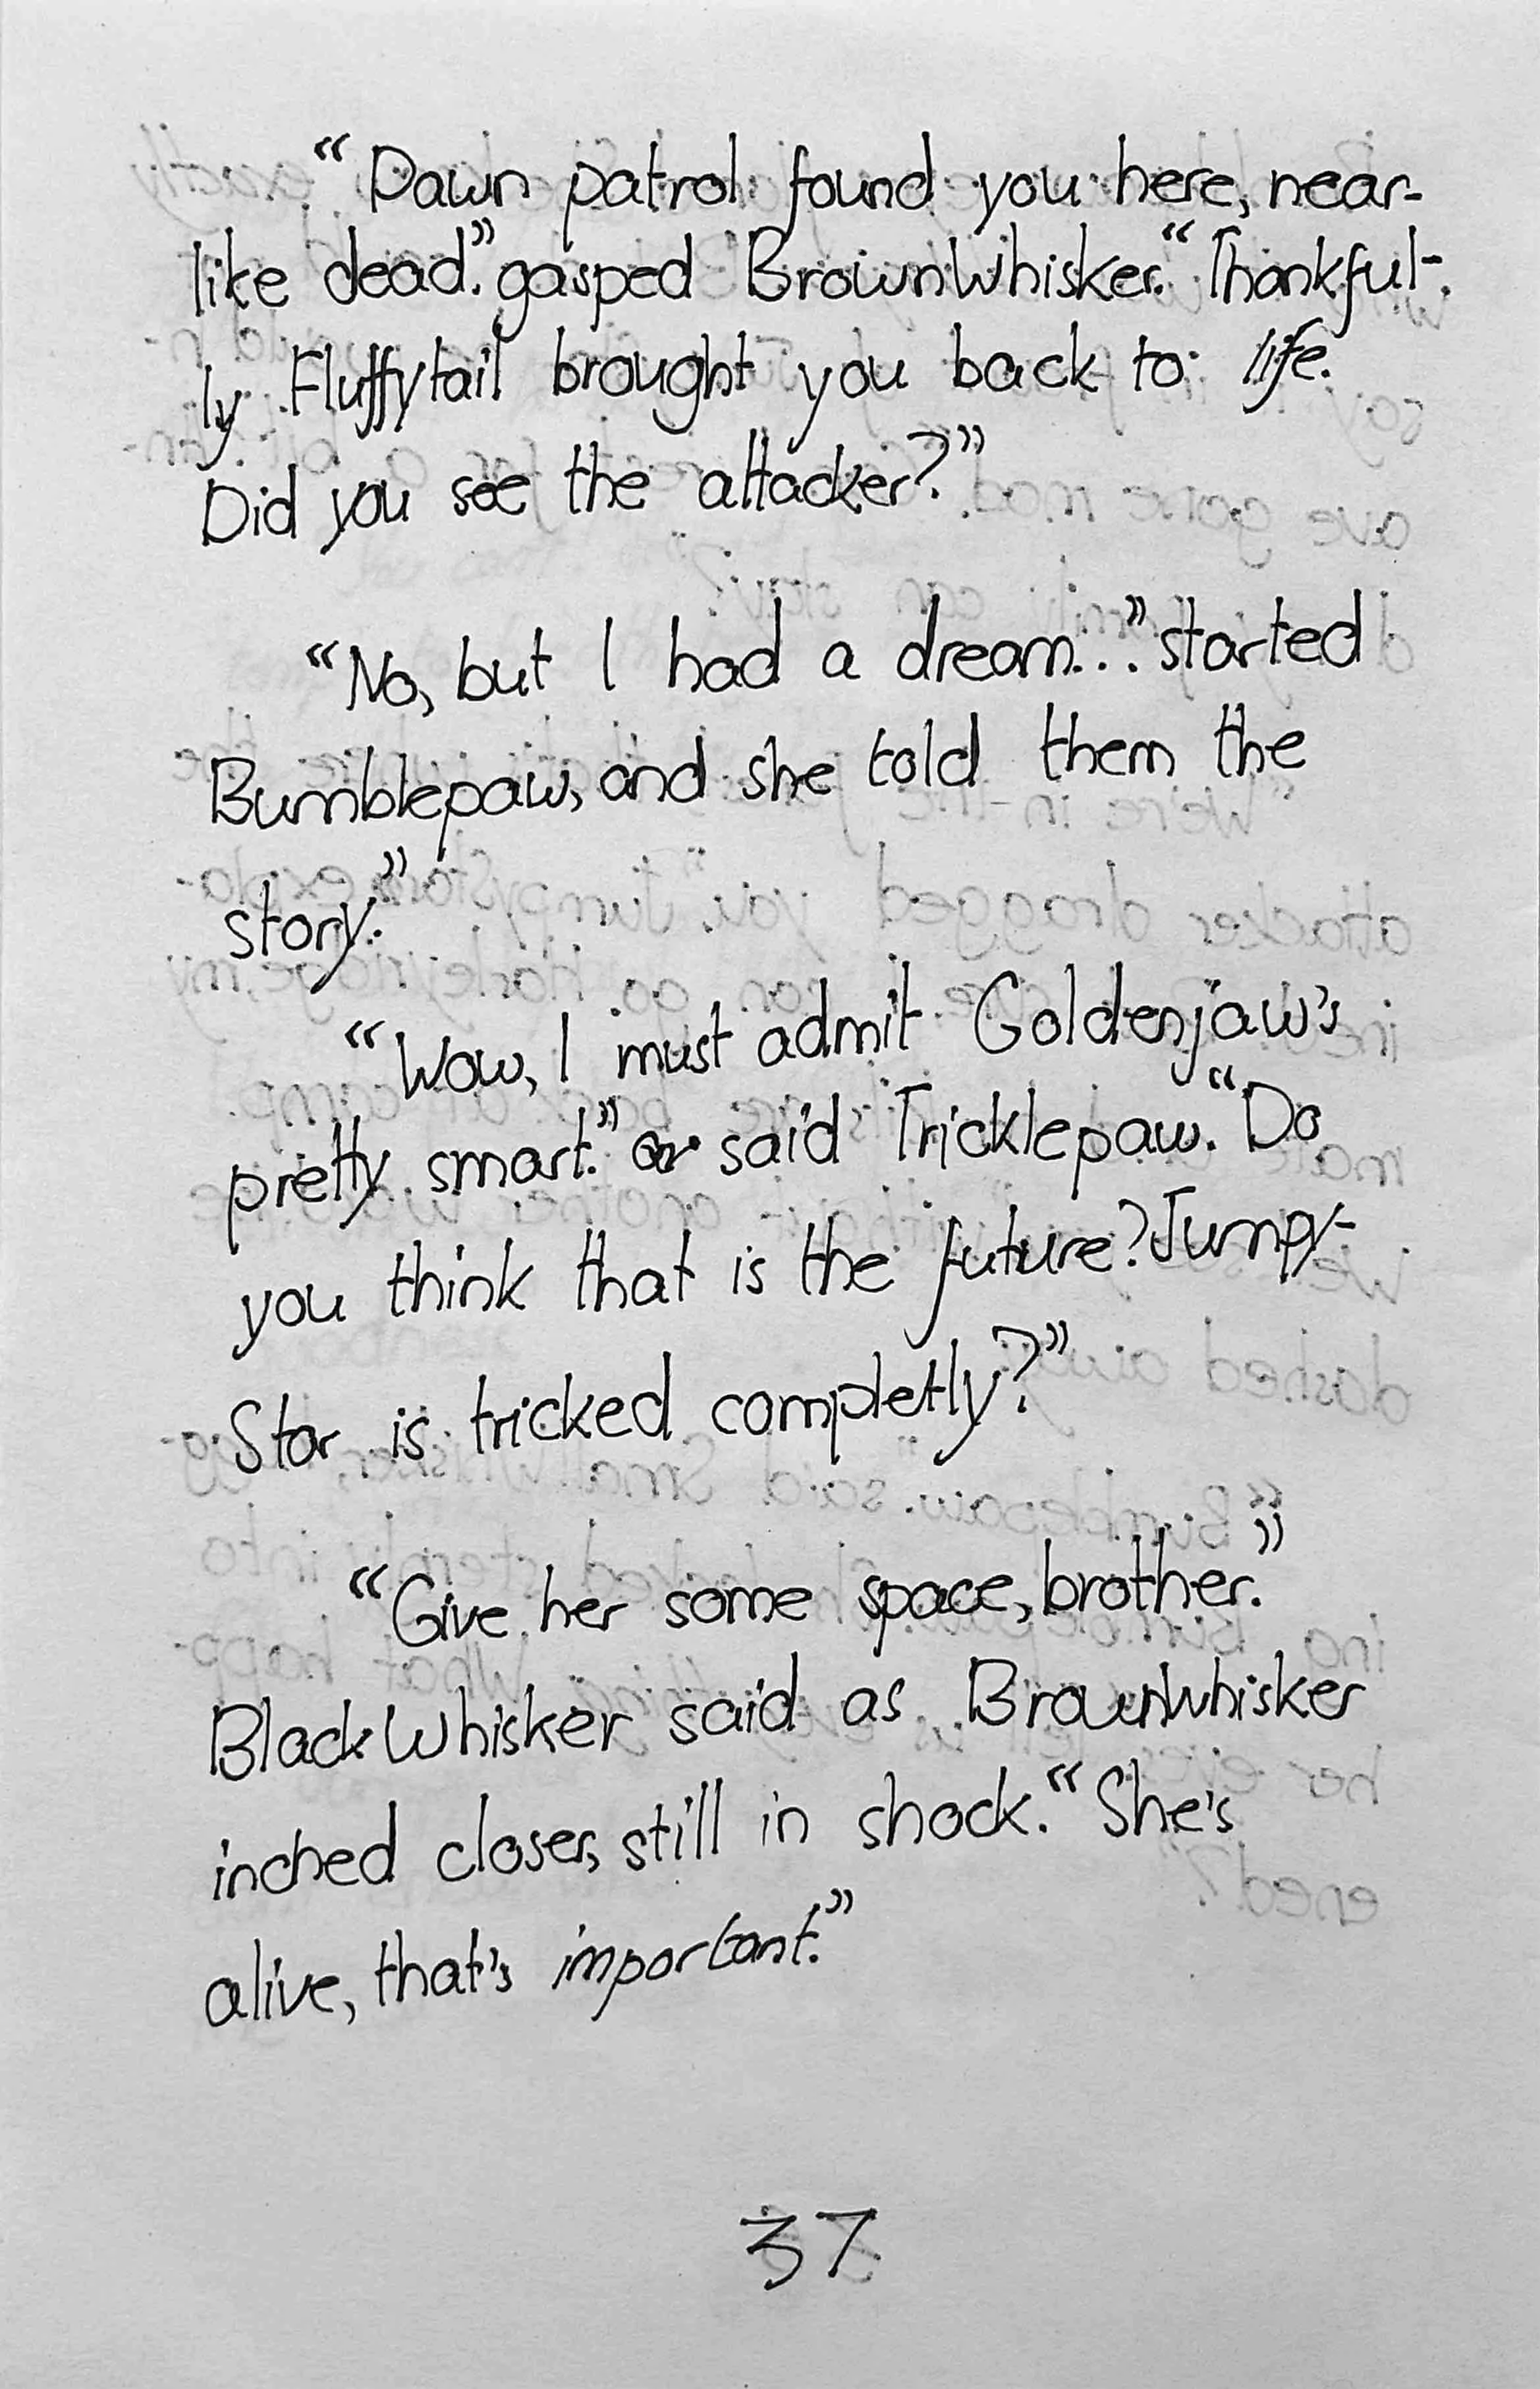 “Dawn patrol found you here, near-
like dead.” gasped BrownWhisker. “Thankful-
ly Fluffytail brought you back to life.
Did you see the attacker?”
“No, but I had a dream...” started
Bumblepaw, and she told them the
story.”
“Wow, I must admit Goldenjaw's
pretty smart.” said Tricklepaw. “Do
you think that is the future? Jumpy-
Star is tricked completly?”
“Give her some space, brother.”
BlackWhisker said as BrownWhisker
inched closer, still in shock. “She's
alive, that's important.”
37